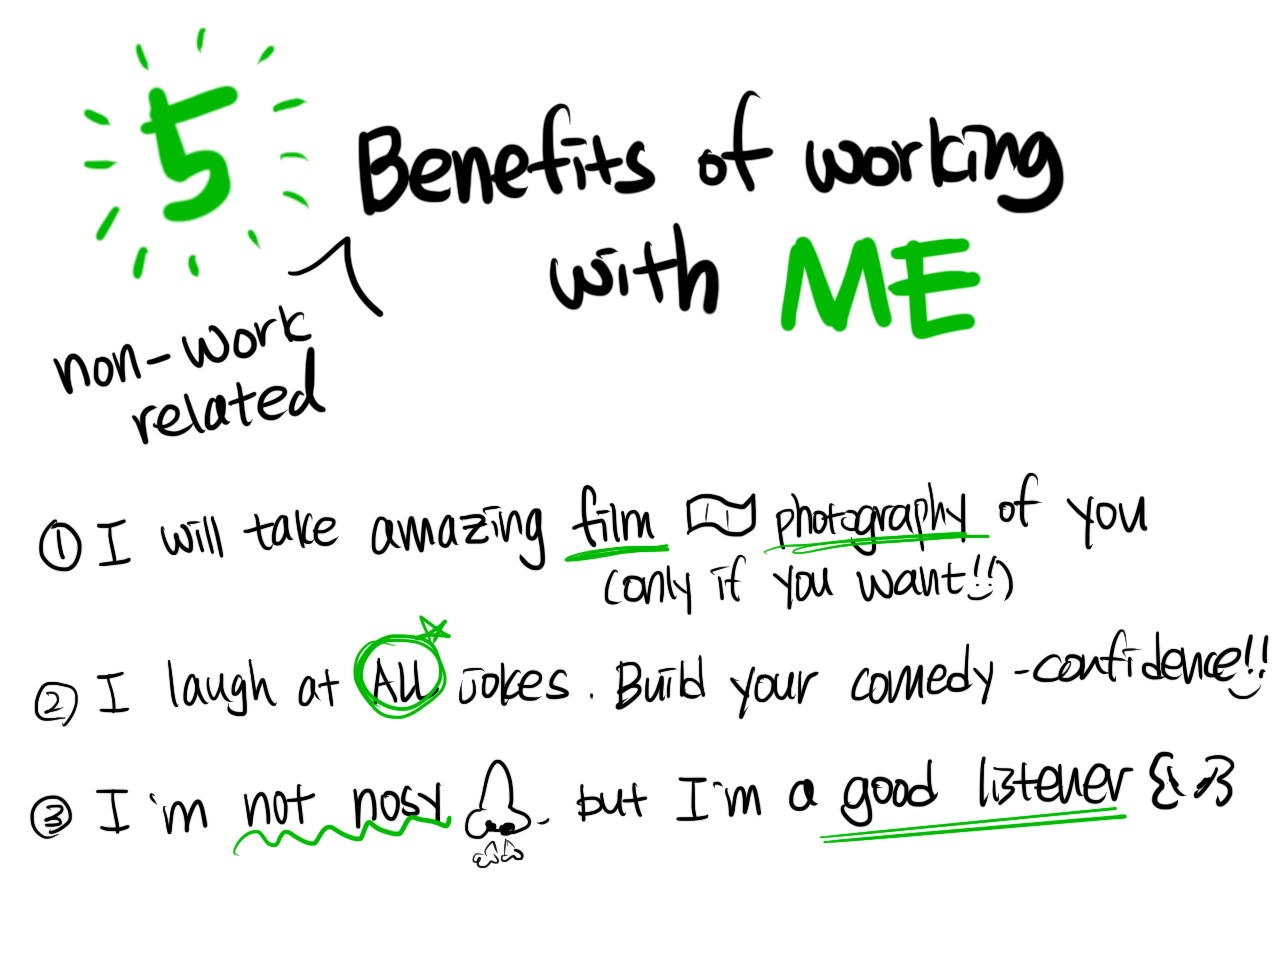 5 Benefits of working
with ME
non-work
related
① I will take amazing film photography of you
(only if you want!!)
② I laugh at ALL jokes. Build your comedy-confidence!!
③ I'm not nosy, but I'm a good listener